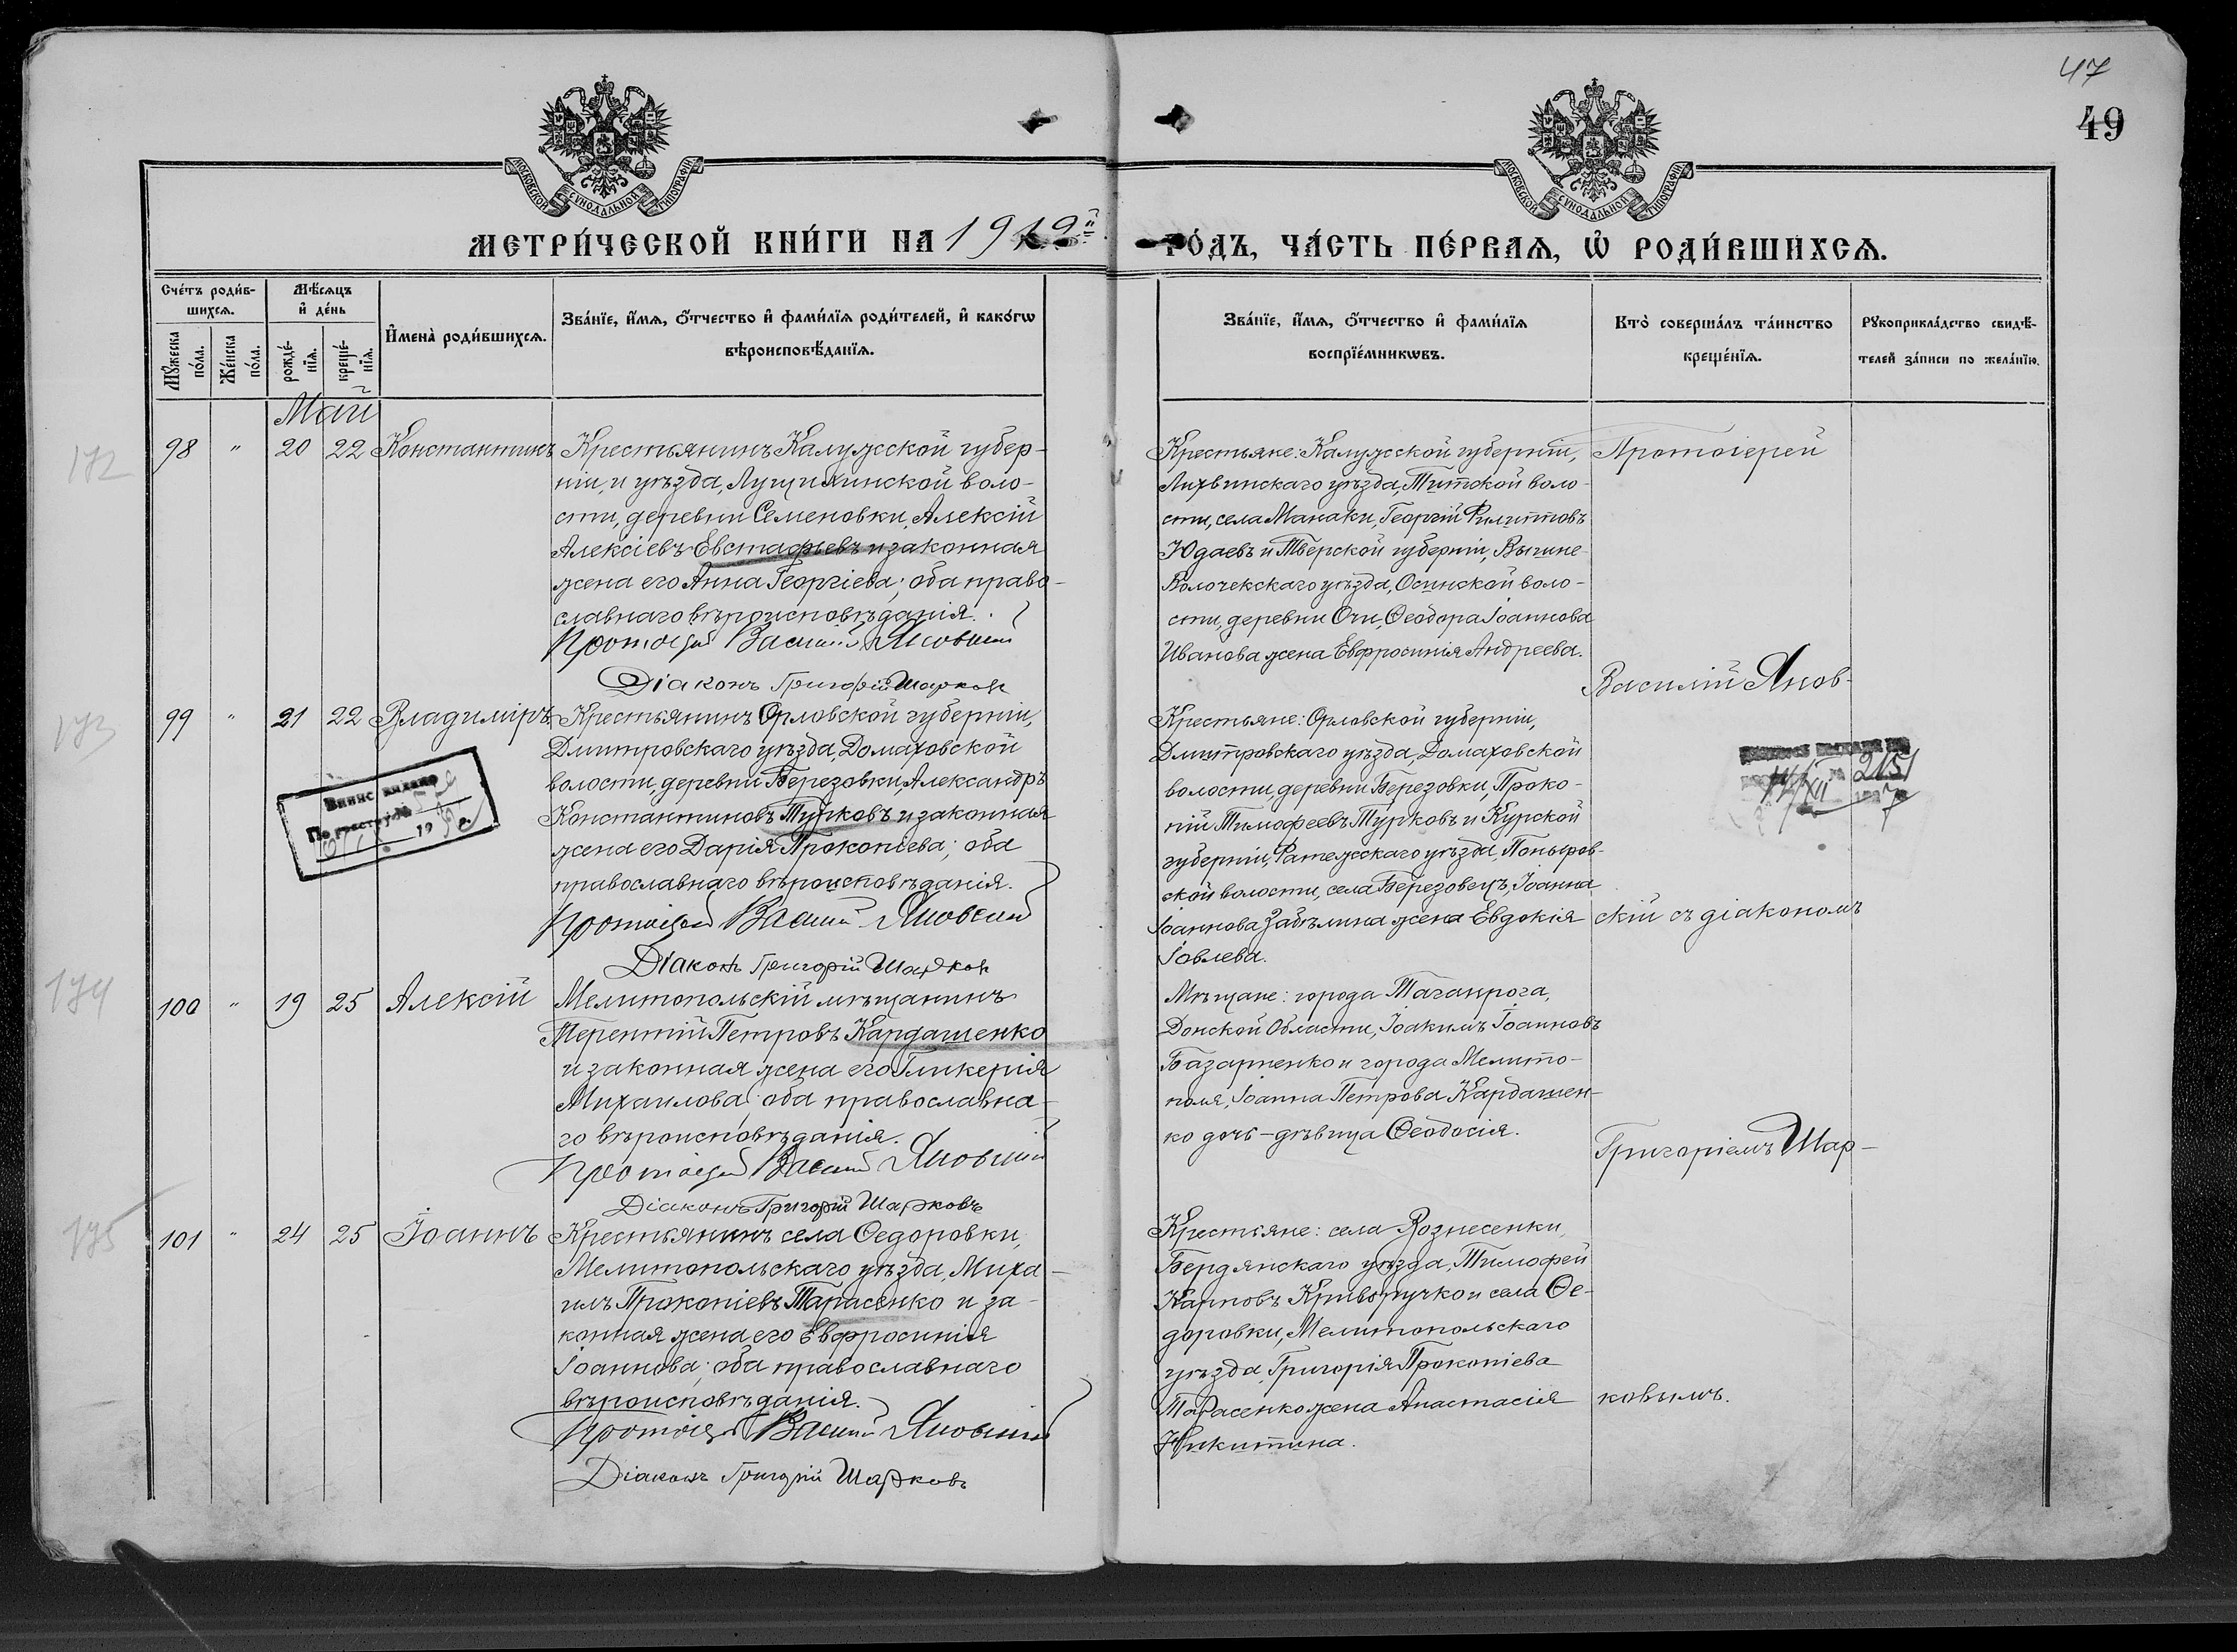 47
49
МОСКОВСКОЙ СѴНОДАЛЬНОЙ ТИПОГРАФІИ.
МОСКОВСКОЙ СѴНОДАЛЬНОЙ ТИПОГРАФІИ.
МЕТРИ́ЧЕСКОЙ КНИ́ГИ НА 1912й
ГО́ДЪ, ЧА́СТЬ ПЕ́РВАѦ, Ѡ҆ РОДИ́ВШИХСѦ.
Сче́тъ роди́в-
шихсѧ.
Мꙋ́жеска
по́ла.
Же́нска
по́ла.
Мѣ́сѧцъ
и҆ де́нь
рожде́-
нїѧ.
креще́-
нїѧ.
И҆мена̀ роди́вшихсѧ.
Зва́нїе, и҆́мѧ, ѻ҆́тчество и҆ фами́лїѧ роди́телей, и҆ како́гѡ
вѣроисповѣ́данїѧ.
Зва́нїе, и҆́мѧ, ѻ҆́тчество и҆ фами́лїѧ
воспрїе́мникѡвъ.
Кто̀ соверша́лъ та́инство
креще́нїѧ.
Рꙋкоприкла́дство свидѣ́-
телей за́писи по жела́нїю.
Май
172
98 " 20 22 Константинъ
Крестьянинъ Калужской губер-
ніи, и уѣзда, Лущихинской воло-
сти, деревни Семеновки, Алексій
Алексіевъ Евстафьевъ и законная
жена его Анна Георгіева; оба право-
славнаго вѣроисповѣданія.
Протоіерей Василій Яновскій
Діаконъ Григорій Шарковъ
Крестьяне: Калужской губерніи,
Лихвинскаго уѣзда, Титской воло-
сти, села Манаки, Георгій Филипповъ
Юдаевъ и Тверской губерніи, Вышне-
Волочекскаго уѣзда, Осинской воло-
сти, деревни Очи, Ѳеодора Іоаннова
Иванова жена Евфросинія Андреева.
Протоіерей
Василій Янов-
173
99 " 21 22 Владиміръ
Крестьянинъ Орловской губерніи,
Дмитровскаго уѣзда, Домаховской
волости, деревни Березовки, Александръ
Константиновъ Турковъ и законная
жена его Дарія Прокопіева; оба
православнаго вѣроисповѣданія.
Протоіерей Василій Яновскій
Діаконъ Григорій Шарковъ
По реестру №
19
Крестьяне: Орловской губерніи,
Дмитровскаго уѣзда, Домаховской
волости, деревни Березовки, Проко-
пій Тимофеевъ Турковъ и Курской
губерніи, Фатежскаго уѣзда, Поныров-
ской волости, села Березовецъ, Іоанна
Іоаннова Забѣлина жена Евдокія
Іовлева.
2151
скій съ діакономъ
174
100 " 19 25 Алексій
Мелитопольскій мѣщанинъ
Терентій Петровъ Кардашенко
и законная жена его Гликерія
Михаилова; оба православна-
го вѣроисповѣданія.
Протоіерей Василій Яновскій
Діаконъ Григорій Шарковъ
Мѣщане: города Таганрога,
Донской Области, Іоакимъ Іоанновъ
Базарненко и города Мелито-
поля, Іоанна Петрова Кардашен-
ко дочь-дѣвица Ѳеодосія.
Григоріемъ Шар-
175
101 " 24 25 Іоаннъ
Крестьянинъ села Ѳедоровки,
Мелитопольскаго уѣзда, Миха-
илъ Прокопіевъ Тарасенко и за-
конная жена его Евфросинія
Іоаннова; оба православнаго
вѣроисповѣданія.
Протоіерей Василій Яновскій
Діаконъ Григорій Шарковъ
Крестьяне: села Вознесенки,
Бердянскаго уѣзда, Тимофей
Карповъ Криворучко и села Ѳе-
доровки, Мелитопольскаго
уѣзда, Григорія Прокопіева
Тарасенко жена Анастасія
Никитина.
ковымъ.